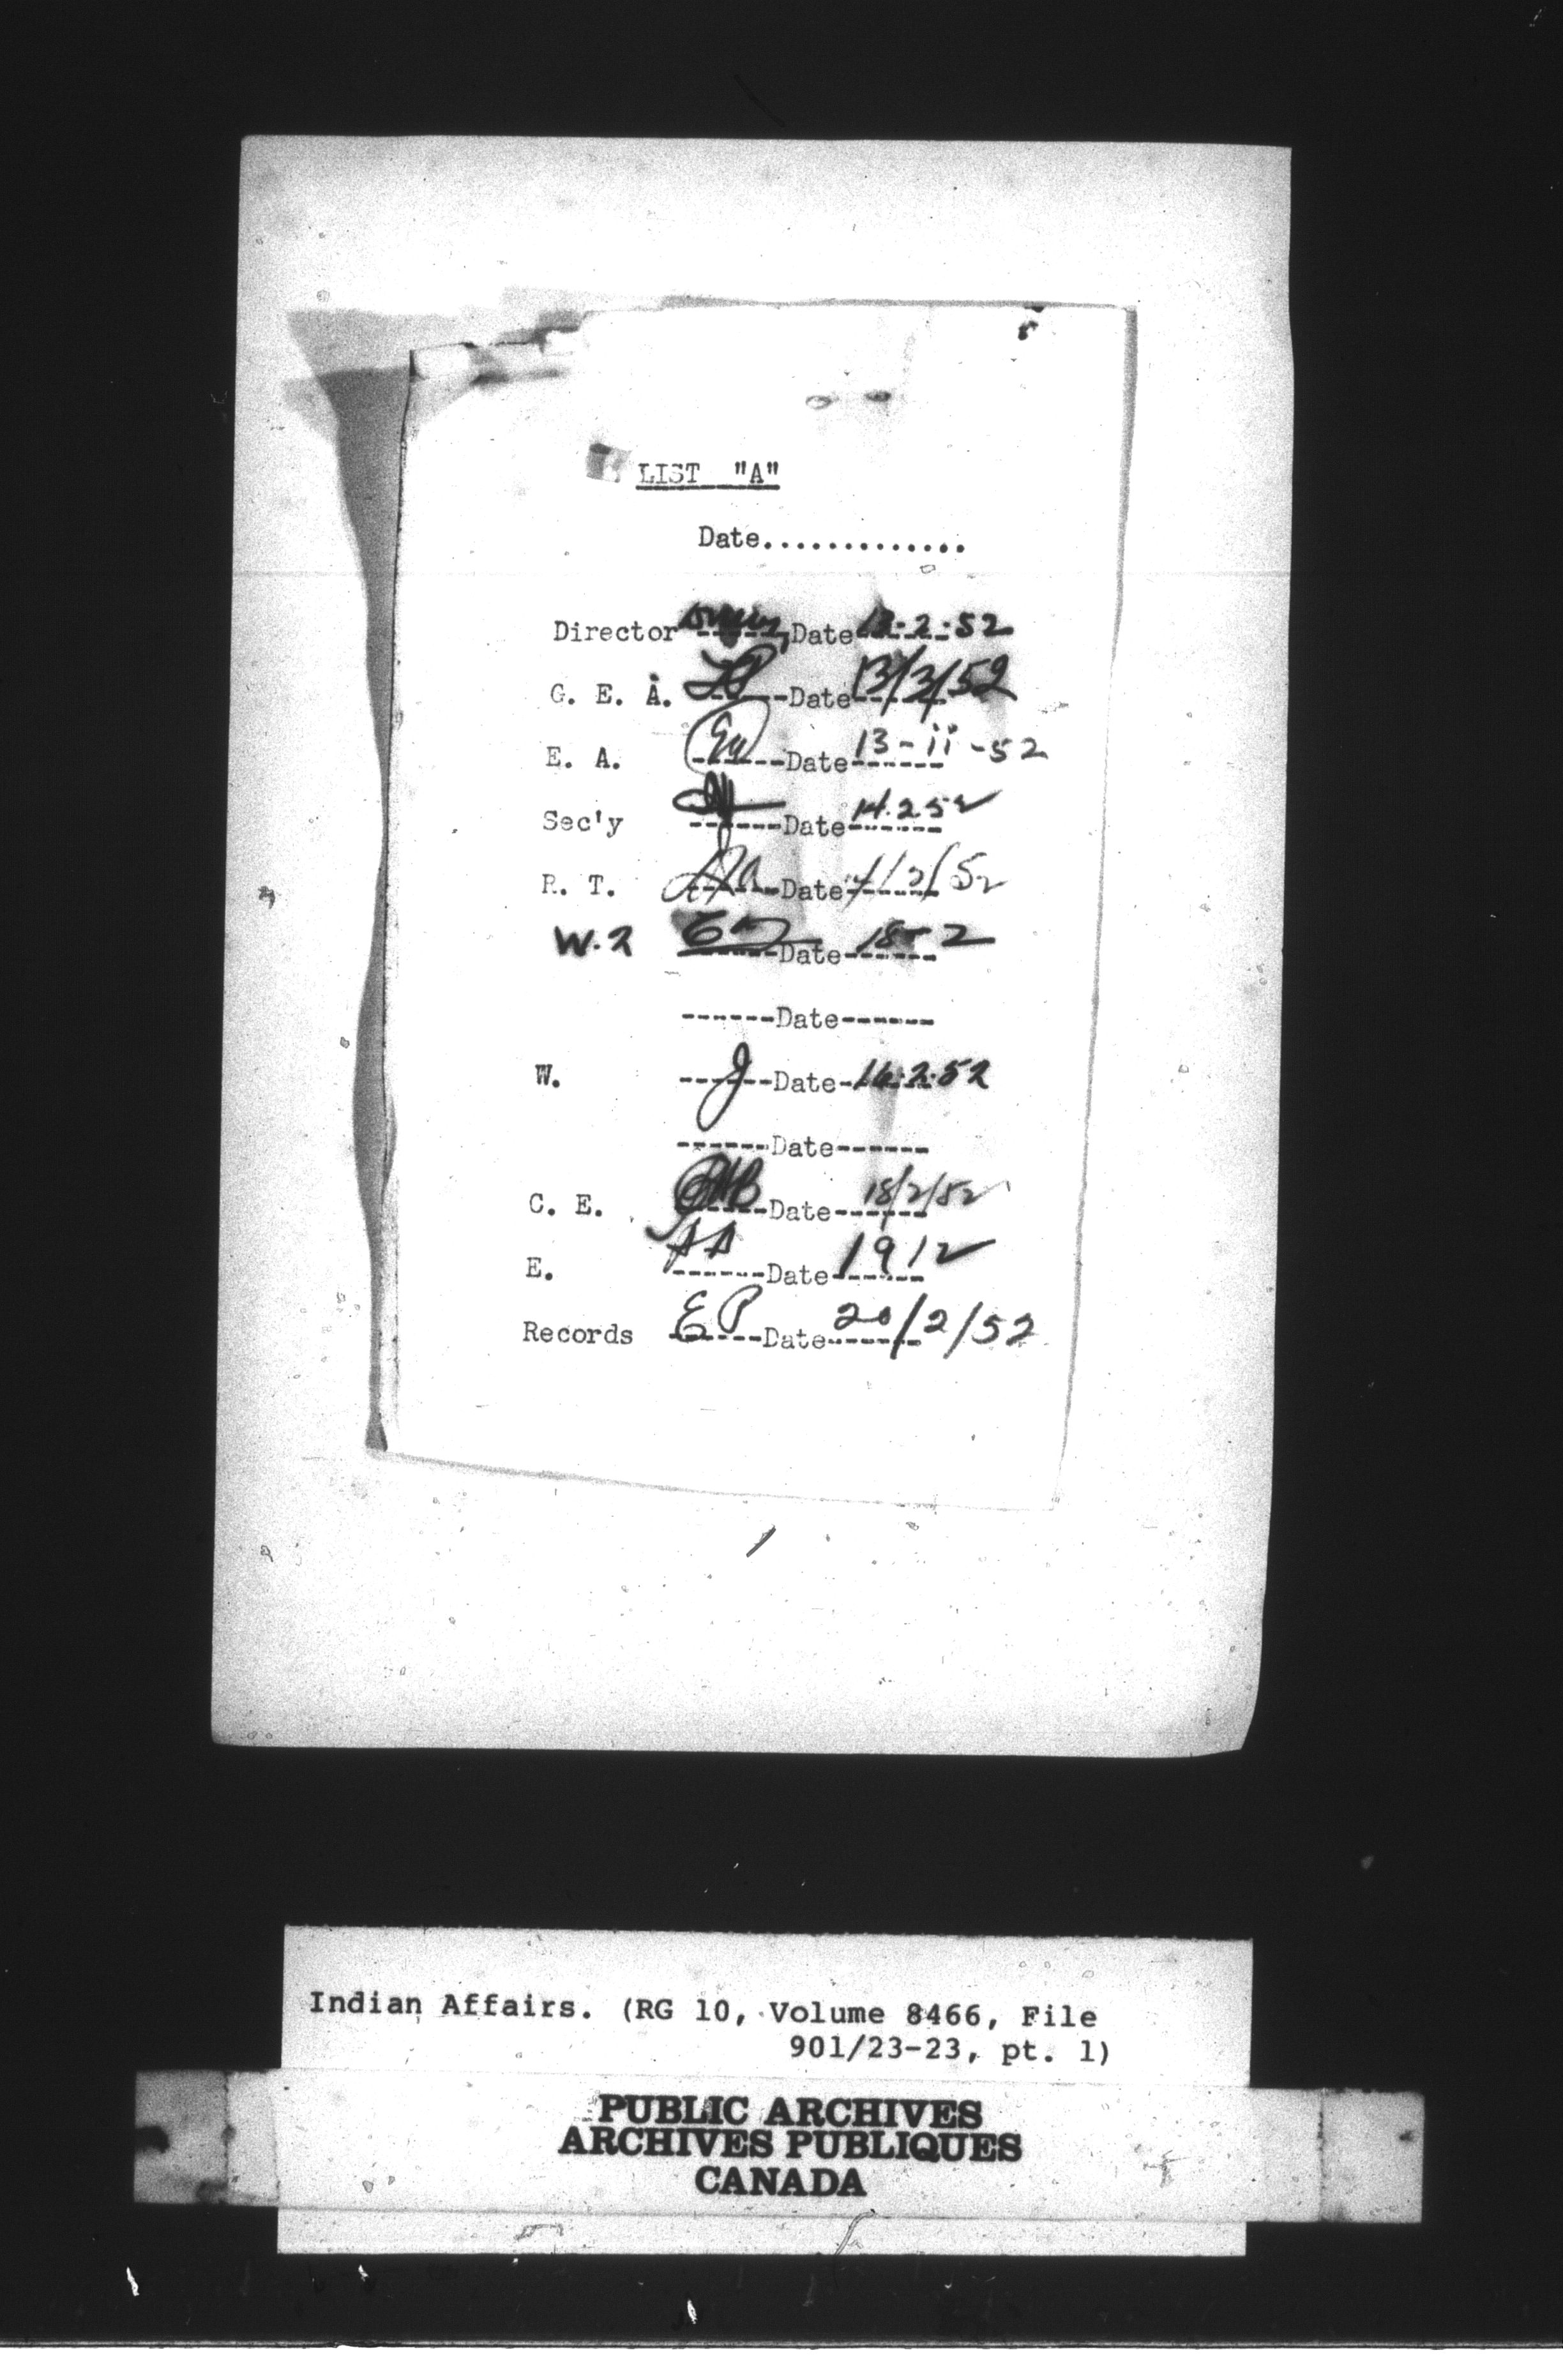 LIST "A"
Date.............
Director ------Date 13-2-52
G. E. A. ------Date 13/2/52
E. A. ------Date 13-ii-52
Sec'y ------Date 14.2.52
R. T. ------Date /2/52
W.2 ------Date 18-2
------Date------
W. ------Date-16.2.52
------Date------
C. E. ------Date 18/2/52
E. ------Date 19/2
Records EP ------Date 20/2/52
Indian Affairs. (RG 10, Volume 8466, File
901/23-23, pt. 1)
PUBLIC ARCHIVES
ARCHIVES PUBLIQUES
CANADA